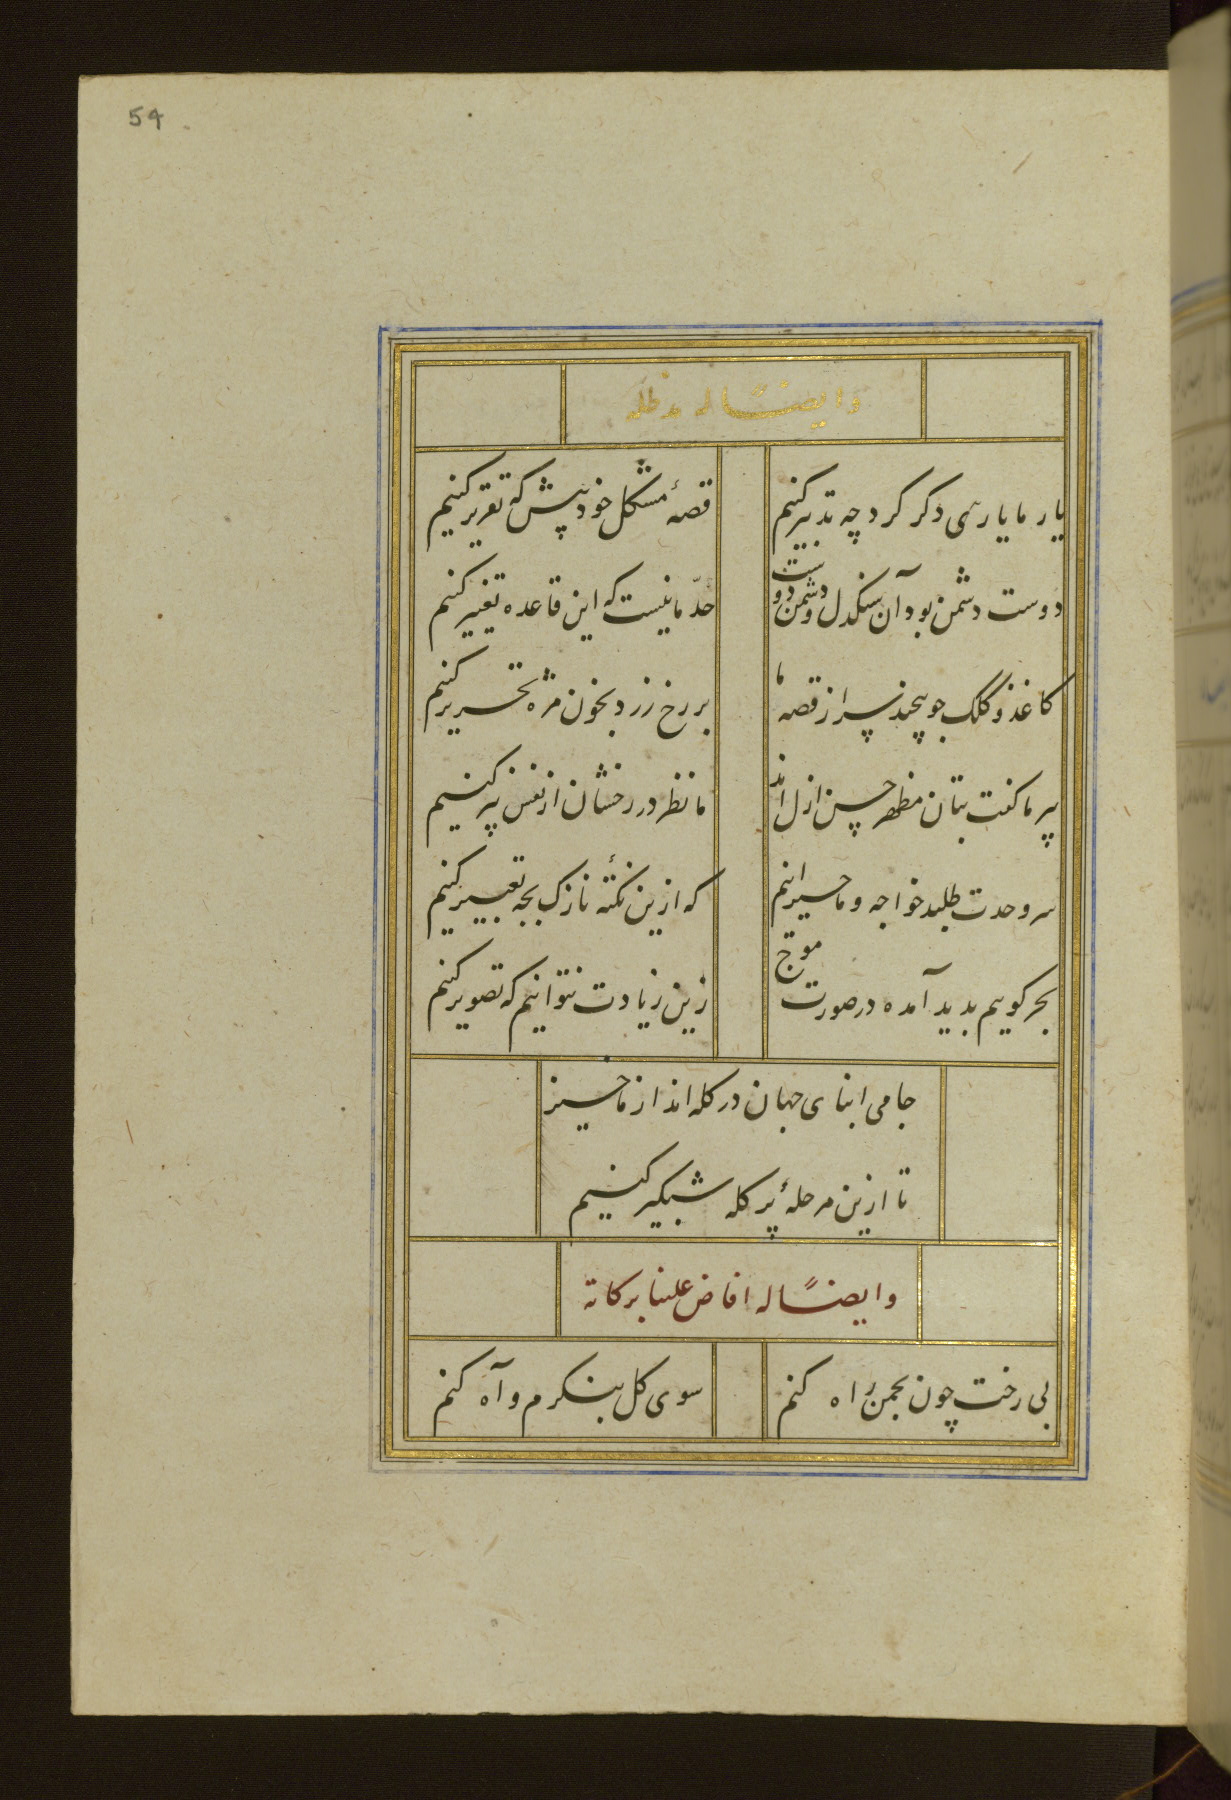 54
وایضًا له مد ظله
یار ما یارئ دکر کرد چه تدبیر کنیم
قصهٔ مشکل خود پیش که تقریر کنیم
دوست دشمن بود آن سنکدل و دشمن دوست
حدّ ما نیست که این قاعده تغییر کنیم
کاغذ و کلک چو پیچند سر از قصه ما
بر رخ زرد بخون مژه تحریر کنیم
پیر ما کفت بتان مظهر حسن ازل اند
ما نظر در رخشان از نفس پیر کنیم
سر وحدت طلبد خواجه و ما حیرانیم
که ازین نکتهٔ نازک بچه تعبیر کنیم
بحر کوییم بدید آمده در صورت موج
زین زیادت نتوانیم که تصویر کنیم
جامی ابنای جهان در کله اند از ما خیز
تا ازین مرحلهٔ پر کله شبکیر کنیم
وایضًا له افاض علینا برکاته
بی رخت چون بچمن راه کنم
سوی کل بنکرم و آه کنم